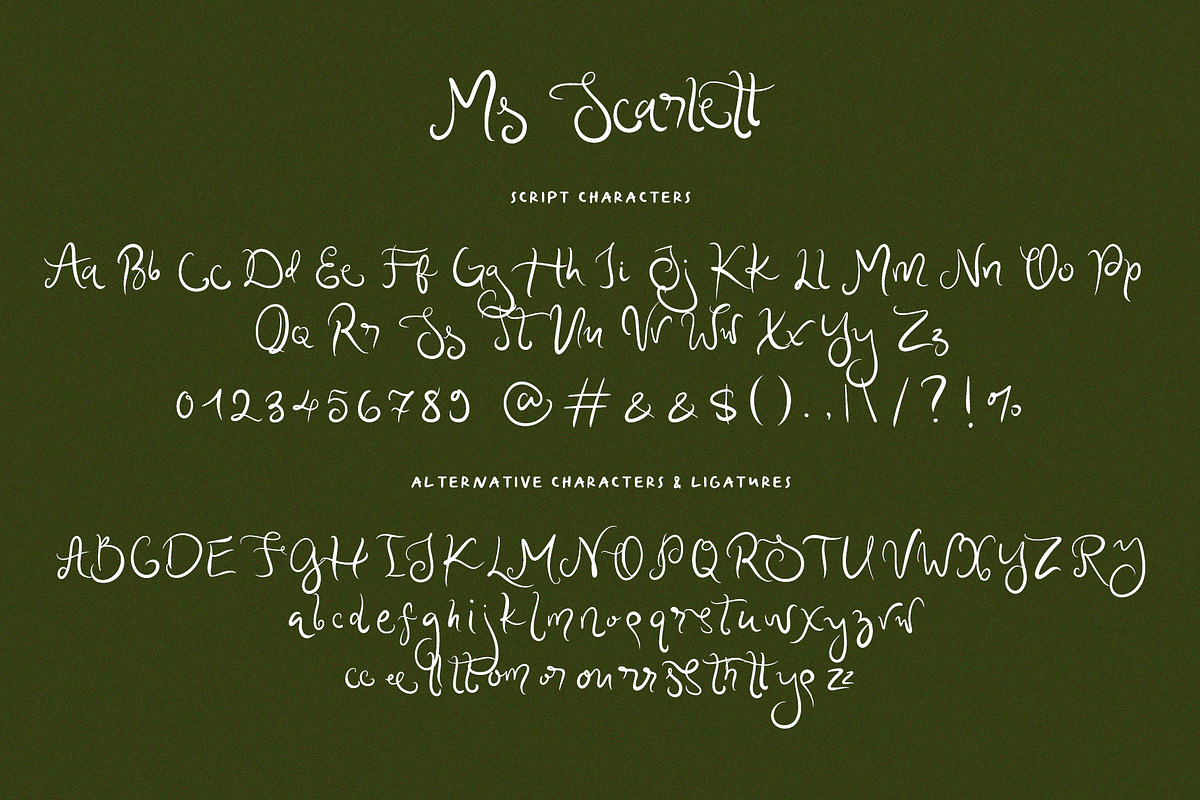 Ms Scarlett
SCRIPT CHARACTERS
Aa Bb Cc Dd Ee Ff Gg Hh Ii Jj Kk Ll Mm Nn Oo Pp
Qq Rr Ss Tt Uu Vv Ww Xx Yy Zz
0123456789 @#&&$().,|\/?!%
ALTERNATIVE CHARACTERS & LIGATURES
ABCDEFGHIJKLMNOPQRSTUVWXYZRY
abcdefghijklmnopqrstuwxyzvw
cc ee ll tt om or on rr ss th tt yp zz